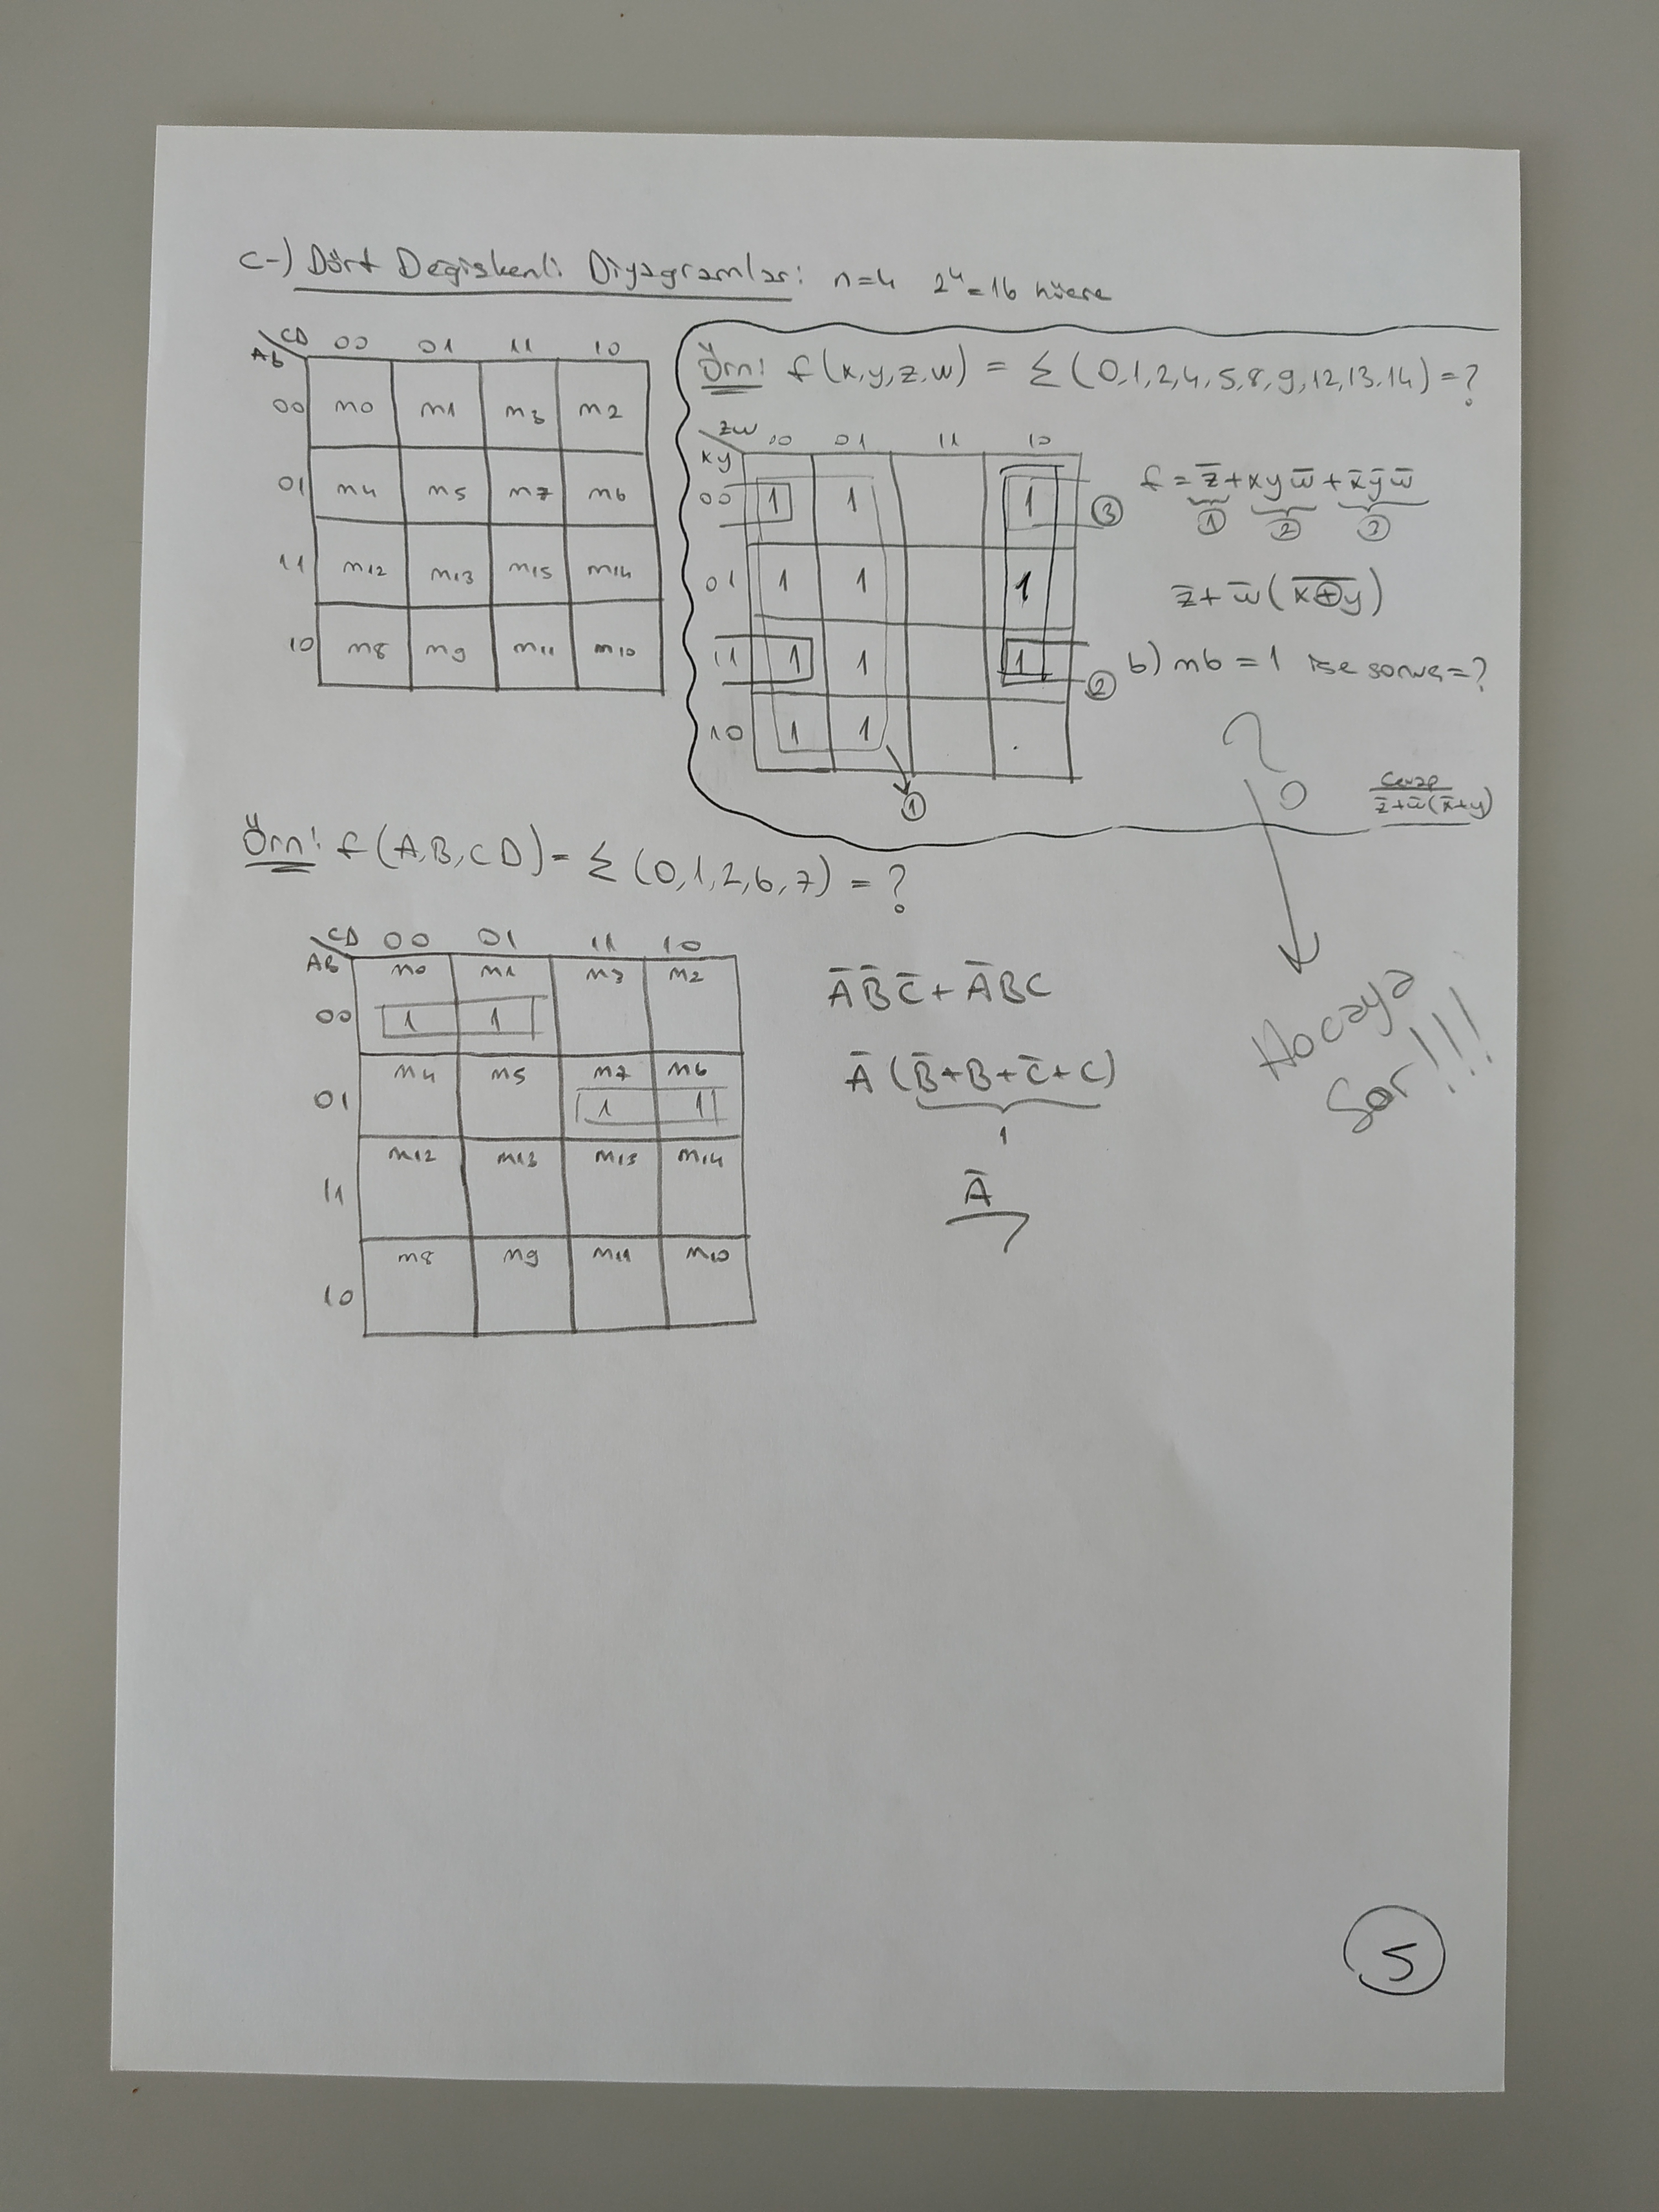 c-) Dört Değişkenli Diyagramlar: n=4 2⁴=16 hücre
AB/CD 00 01 11 10
00 m0 m1 m3 m2
01 m4 m5 m7 m6
11 m12 m13 m15 m14
10 m8 m9 m11 m10
Örn: f(x,y,z,w) = Σ(0,1,2,4,5,8,9,12,13,14)=?
xy/zw 10 01 11 10
00 1 1 1 ③
01 1 1 1
11 1 1 1 ②
10 1 1 .
①
f = z̅ + xyw̅ + x̅y̅w̅
① ② ③
z̅+w̅(x̅⊕̅y̅)
b) m6 = 1 ise sonuç=?
Cevap
z̅+w̅(x̅+y)
Hocaya
Sor !!!
Örn: f(A,B,CD) = Σ(0,1,2,6,7) = ?
AB/CD 00 01 11 10
00 m0 1 m1 1 m3 m2
01 m4 m5 m7 1 m6 1
11 m12 m13 m15 m14
10 m8 m9 m11 m10
A̅B̅C̅+A̅BC
A̅(B̅+B+C̅+C)
1
A̅
5